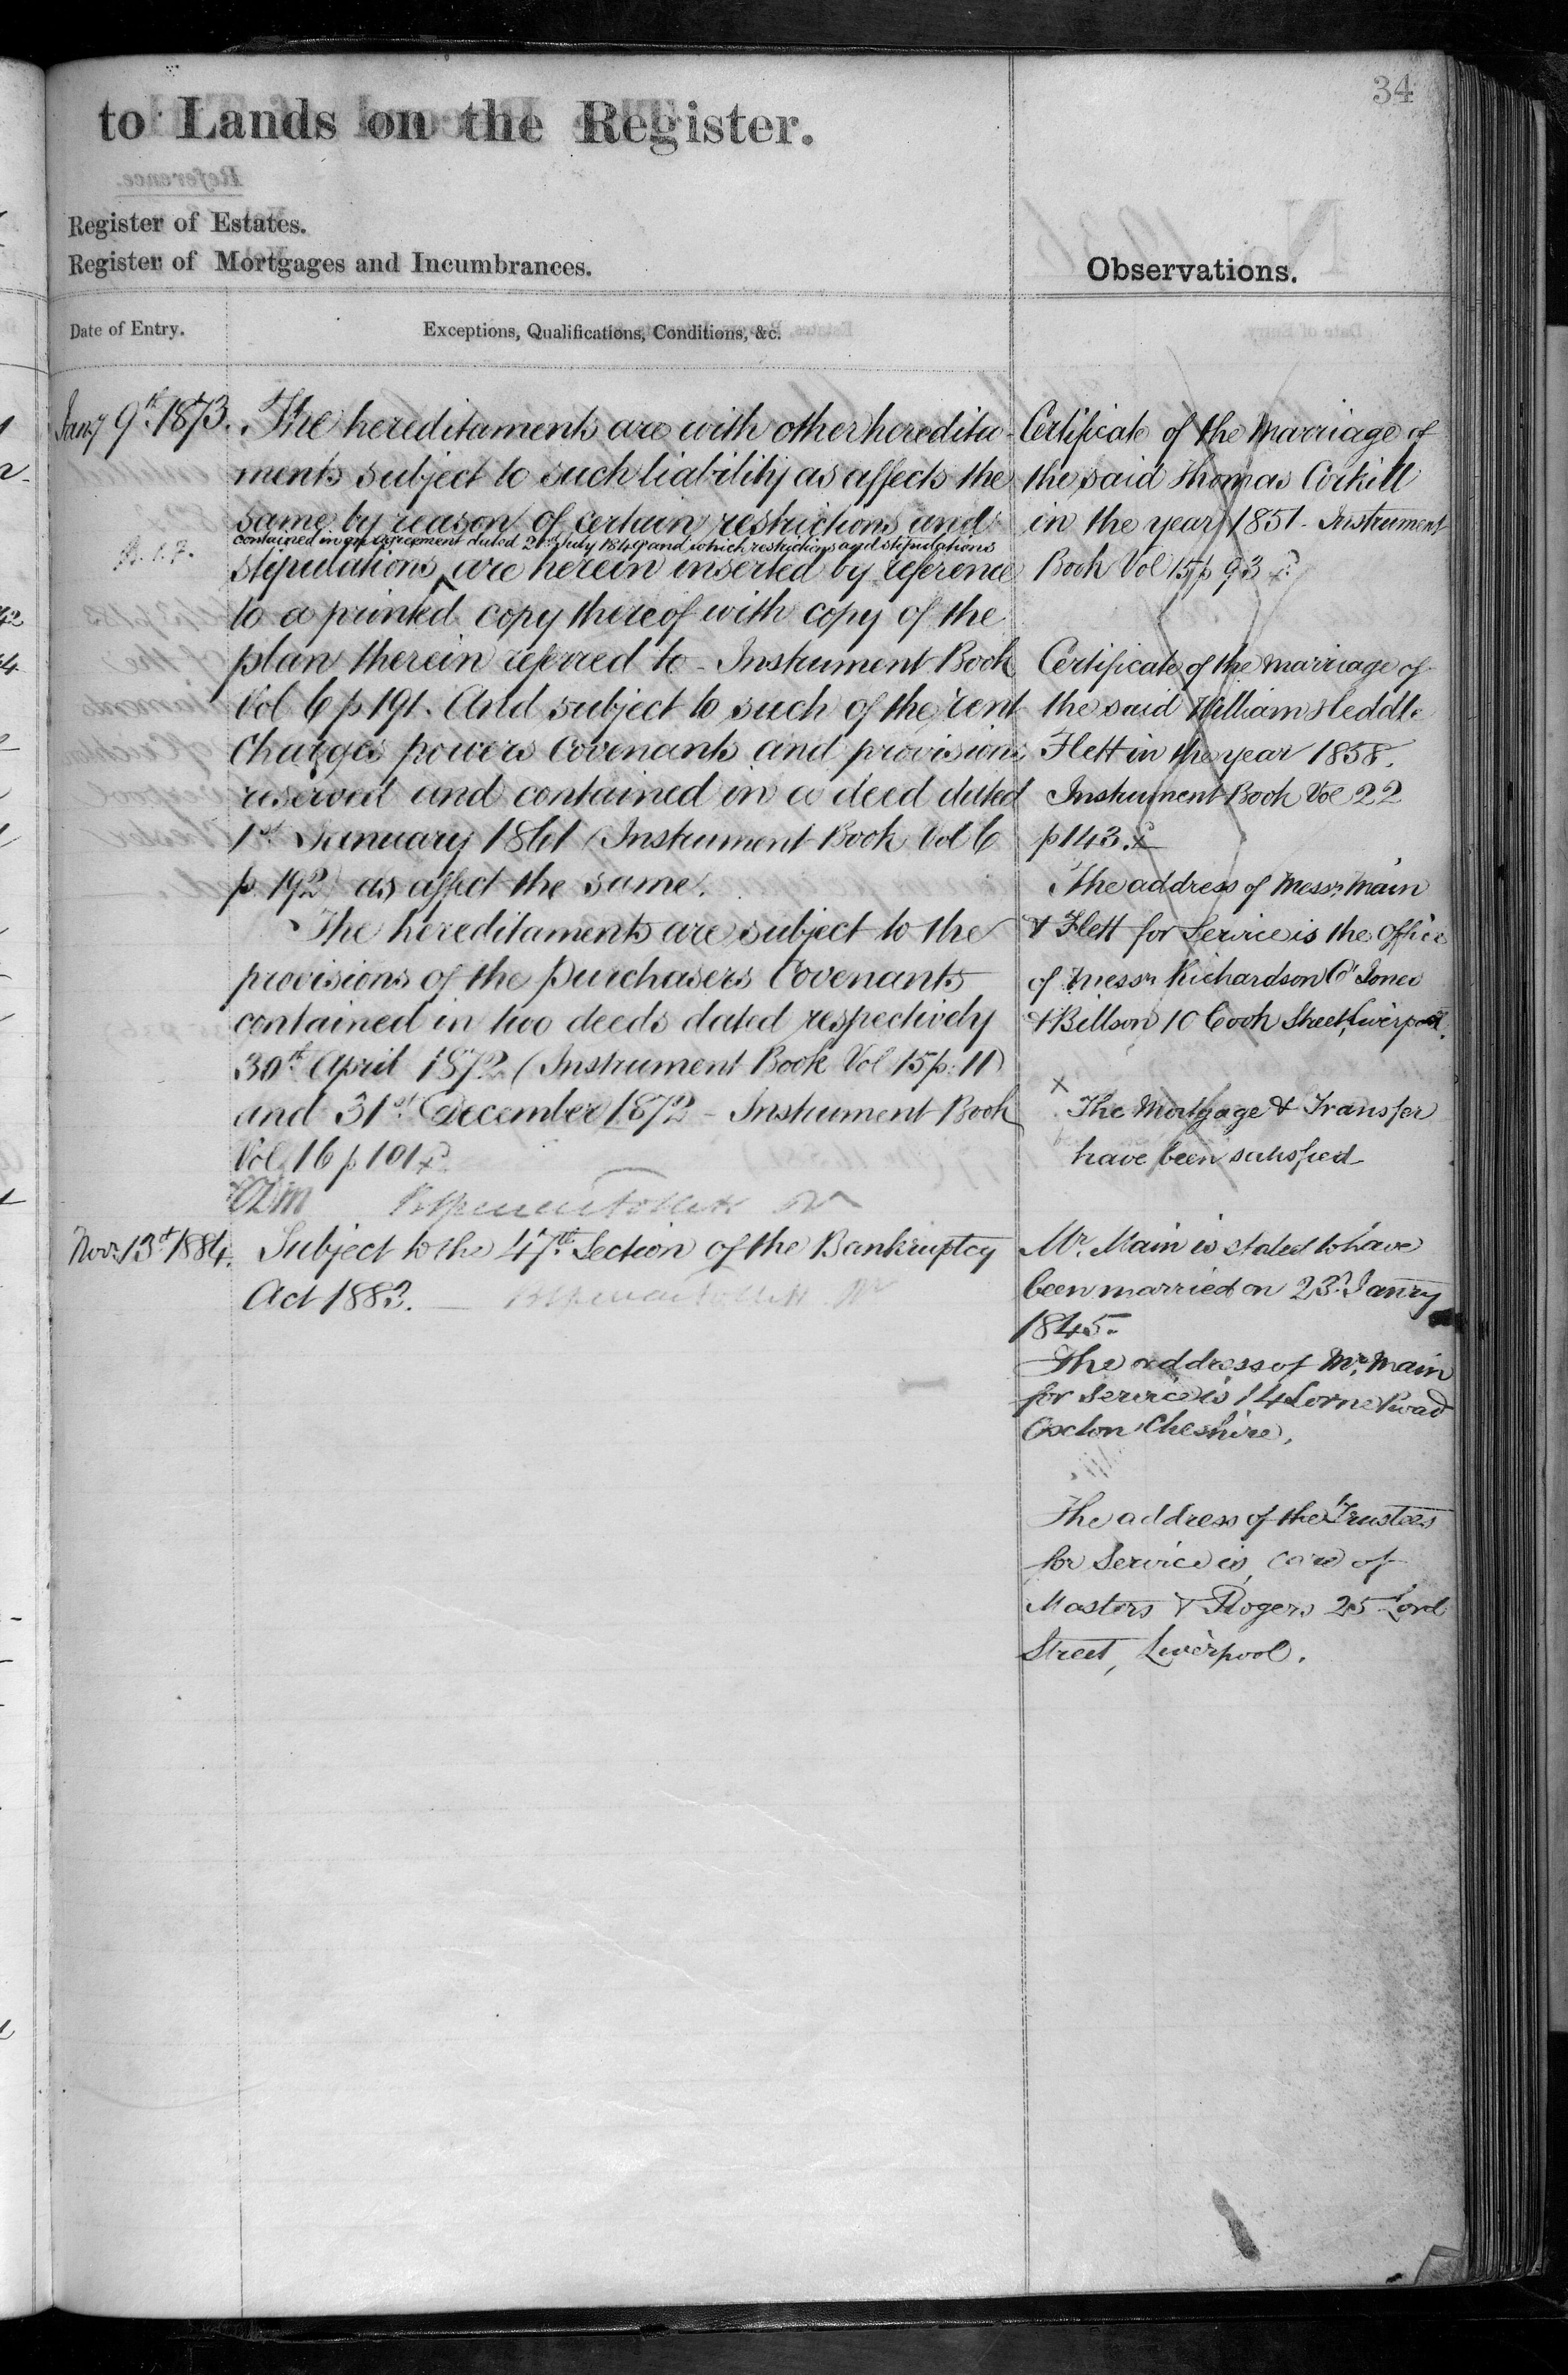 34
to Lands on the Register.
Register of Estates.
Register of Mortgages and Incumbrances.
Observations.
Date of Entry.
Exceptions, Qualifications, Conditions, &c.
Jany 9th 1873.
The hereditaments are with other heredita-
ments subject to such liability as affects the
same by reason of certain restrictions and
contained in an agreement dated 21st July 1849 and which restrictions and stipulations
stipulations are herein inserted by reference
to a printed copy thereof with copy of the
plan therein referred to - Instrument Book
Vol 6 p 191. And subject to such of the rent
Charges powers covenants and provisions
reserved and contained in a deed dated
1st January 1861 (Instrument Book Vol 6
p 192) as affect the same.
The hereditaments are subject to the
provisions of the purchasers Covenants
contained in two deeds dated respectively
30th April 1872 (Instrument Book Vol 15 p. 11)
and 31st December 1872 - Instrument Book
Vol. 16 p 101
Novr. 13th 1884.
Subject to the 47th Section of the Bankruptcy
Act 1883.
Certificate of the Marriage of
the said Thomas Corkill
in the year 1851 - Instrument
Book Vol 15 p 93
Certificate of the marriage of
the said William Heddle
Flett in the year 1858.
Instrument Book Vol 22
p 143.
The address of Messrs Main
& Flett for Service is the Office
of Messrs Richardson Jones
& Billson 10 Cook Street, Liverpool.
x
The Mortgage & Transfer
have been satisfied
Mr. Main is stated to have
been married on 23d Janry
1845.
The address of Mr. Main
for Service is 14 Lorne Road
Oxton Cheshire.
The address of the Trustees
for Service is care of
Masters & Rogers 25 Lord
Street, Liverpool.